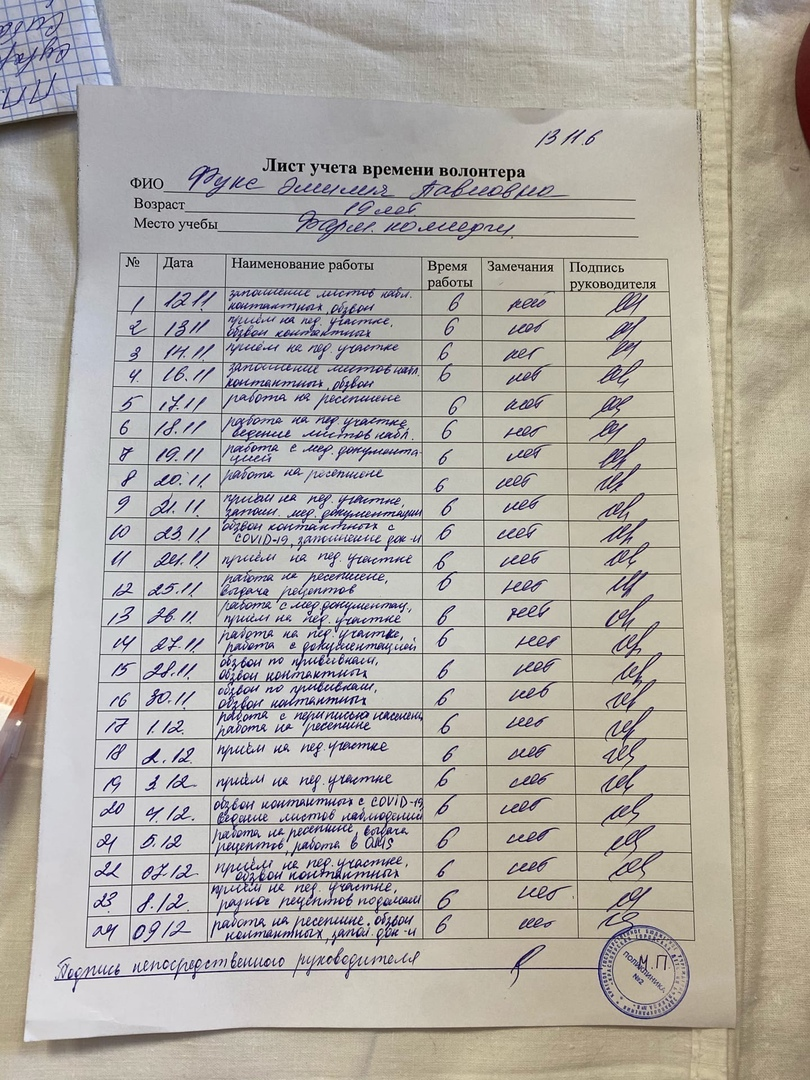 13 11.6
Лист учета времени волонтера
ФИО Фукс Эмилия Павловна
Возраст 19 лет
Место учебы Фарм. колледж
№ Дата Наименование работы Время работы Замечания Подпись руководителя
1 12.11 заполнение листов набл. контактных, обзвон 6 нет
2 13.11 приём на пед. участке, обзвон контактных 6 нет
3 14.11 приём на пед. участке 6 нет
4. 16.11 заполнение листов набл. контактных, обзвон 6 нет
5 17.11 работа на ресепшене 6 нет
6 18.11 работа на пед. участке, ведение листов набл. 6 нет
7 19.11 работа с мед. документацией 6 нет
8 20.11. работа на ресепшене 6 нет
9 21.11. приём на пед. участке, заполн. мед. документации 6 нет
10 23.11 обзвон контактных с COVID-19, заполнение док-и 6 нет
11 24.11. приём на пед. участке 6 нет
12 25.11. работа на ресепшене, выдача рецептов 6 нет
13 26.11 работа с мед документац., приём на пед. участке 6 нет
14 27.11. работа на пед. участке, работа с документацией 6 нет
15 28.11. обзвон по прививкам, обзвон контактных 6 нет
16 30.11. обзвон по прививкам, обзвон контактных 6 нет
17 1.12. работа с переписью населен, работа на ресепшене 6 нет
18 2.12. приём на пед. участке 6 нет
19 3.12 приём на пед. участке 6 нет
20 4.12. обзвон контактных с COVID-19, ведение листов наблюдений 6 нет
21 5.12 работа на ресепшне, выдача рецептов, работа в QMS 6 нет
22 07.12. приём на пед. участке, обзвон контактных 6 нет
23 8.12. приём на пед. участке, разнос рецептов по домам 6 нет.
24 09.12 работа на ресепшне. обзвон контактных, запол. док-и 6 нет
Подпись непосредственного руководителя
М.П.
ПОЛИКЛИНИКА
№2